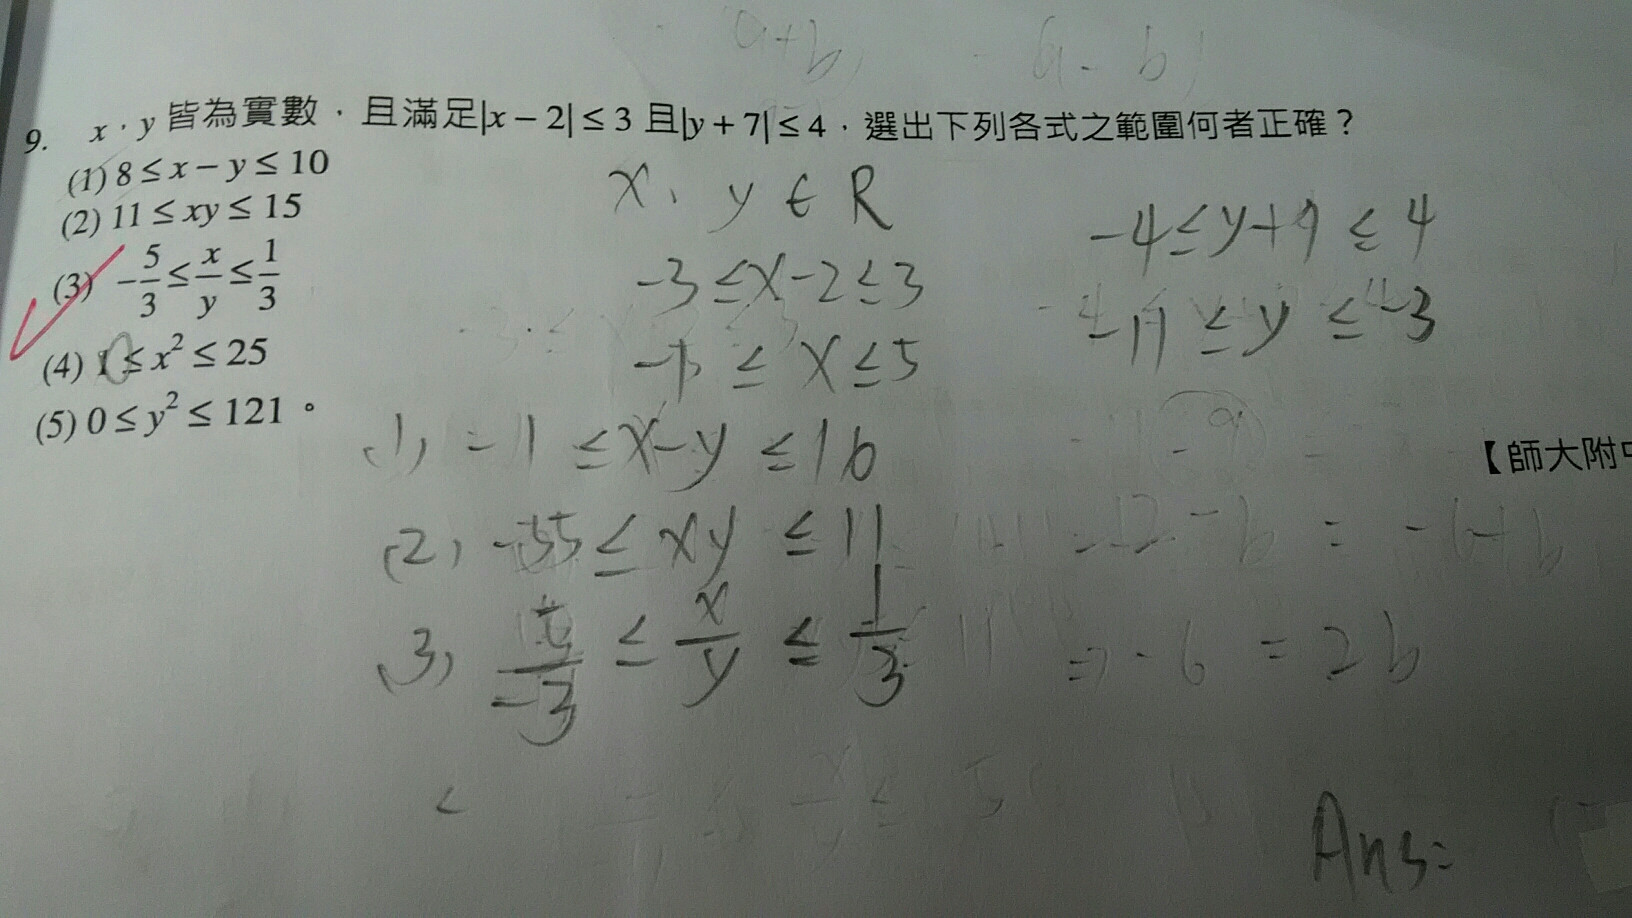 a+b a-b
9. x，y 皆為實數，且滿足|x − 2| ≤ 3 且|y + 7| ≤ 4，選出下列各式之範圍何者正確？
(1) 8 ≤ x − y ≤ 10
(2) 11 ≤ xy ≤ 15
(3) −5/3 ≤ x/y ≤ 1/3
(4) 1 ≤ x² ≤ 25
(5) 0 ≤ y² ≤ 121。
【師大附中
x, y ∈ R
-3 ≤ x-2 ≤ 3
-1 ≤ x ≤ 5
-4 ≤ y+7 ≤ 4
-11 ≤ y ≤ -3
(1) -1 ≤ x-y ≤ 16
(2) -55 ≤ xy ≤ 11
(3) 5/-3 ≤ x/y ≤ 1/3
-6 = 2b
Ans: